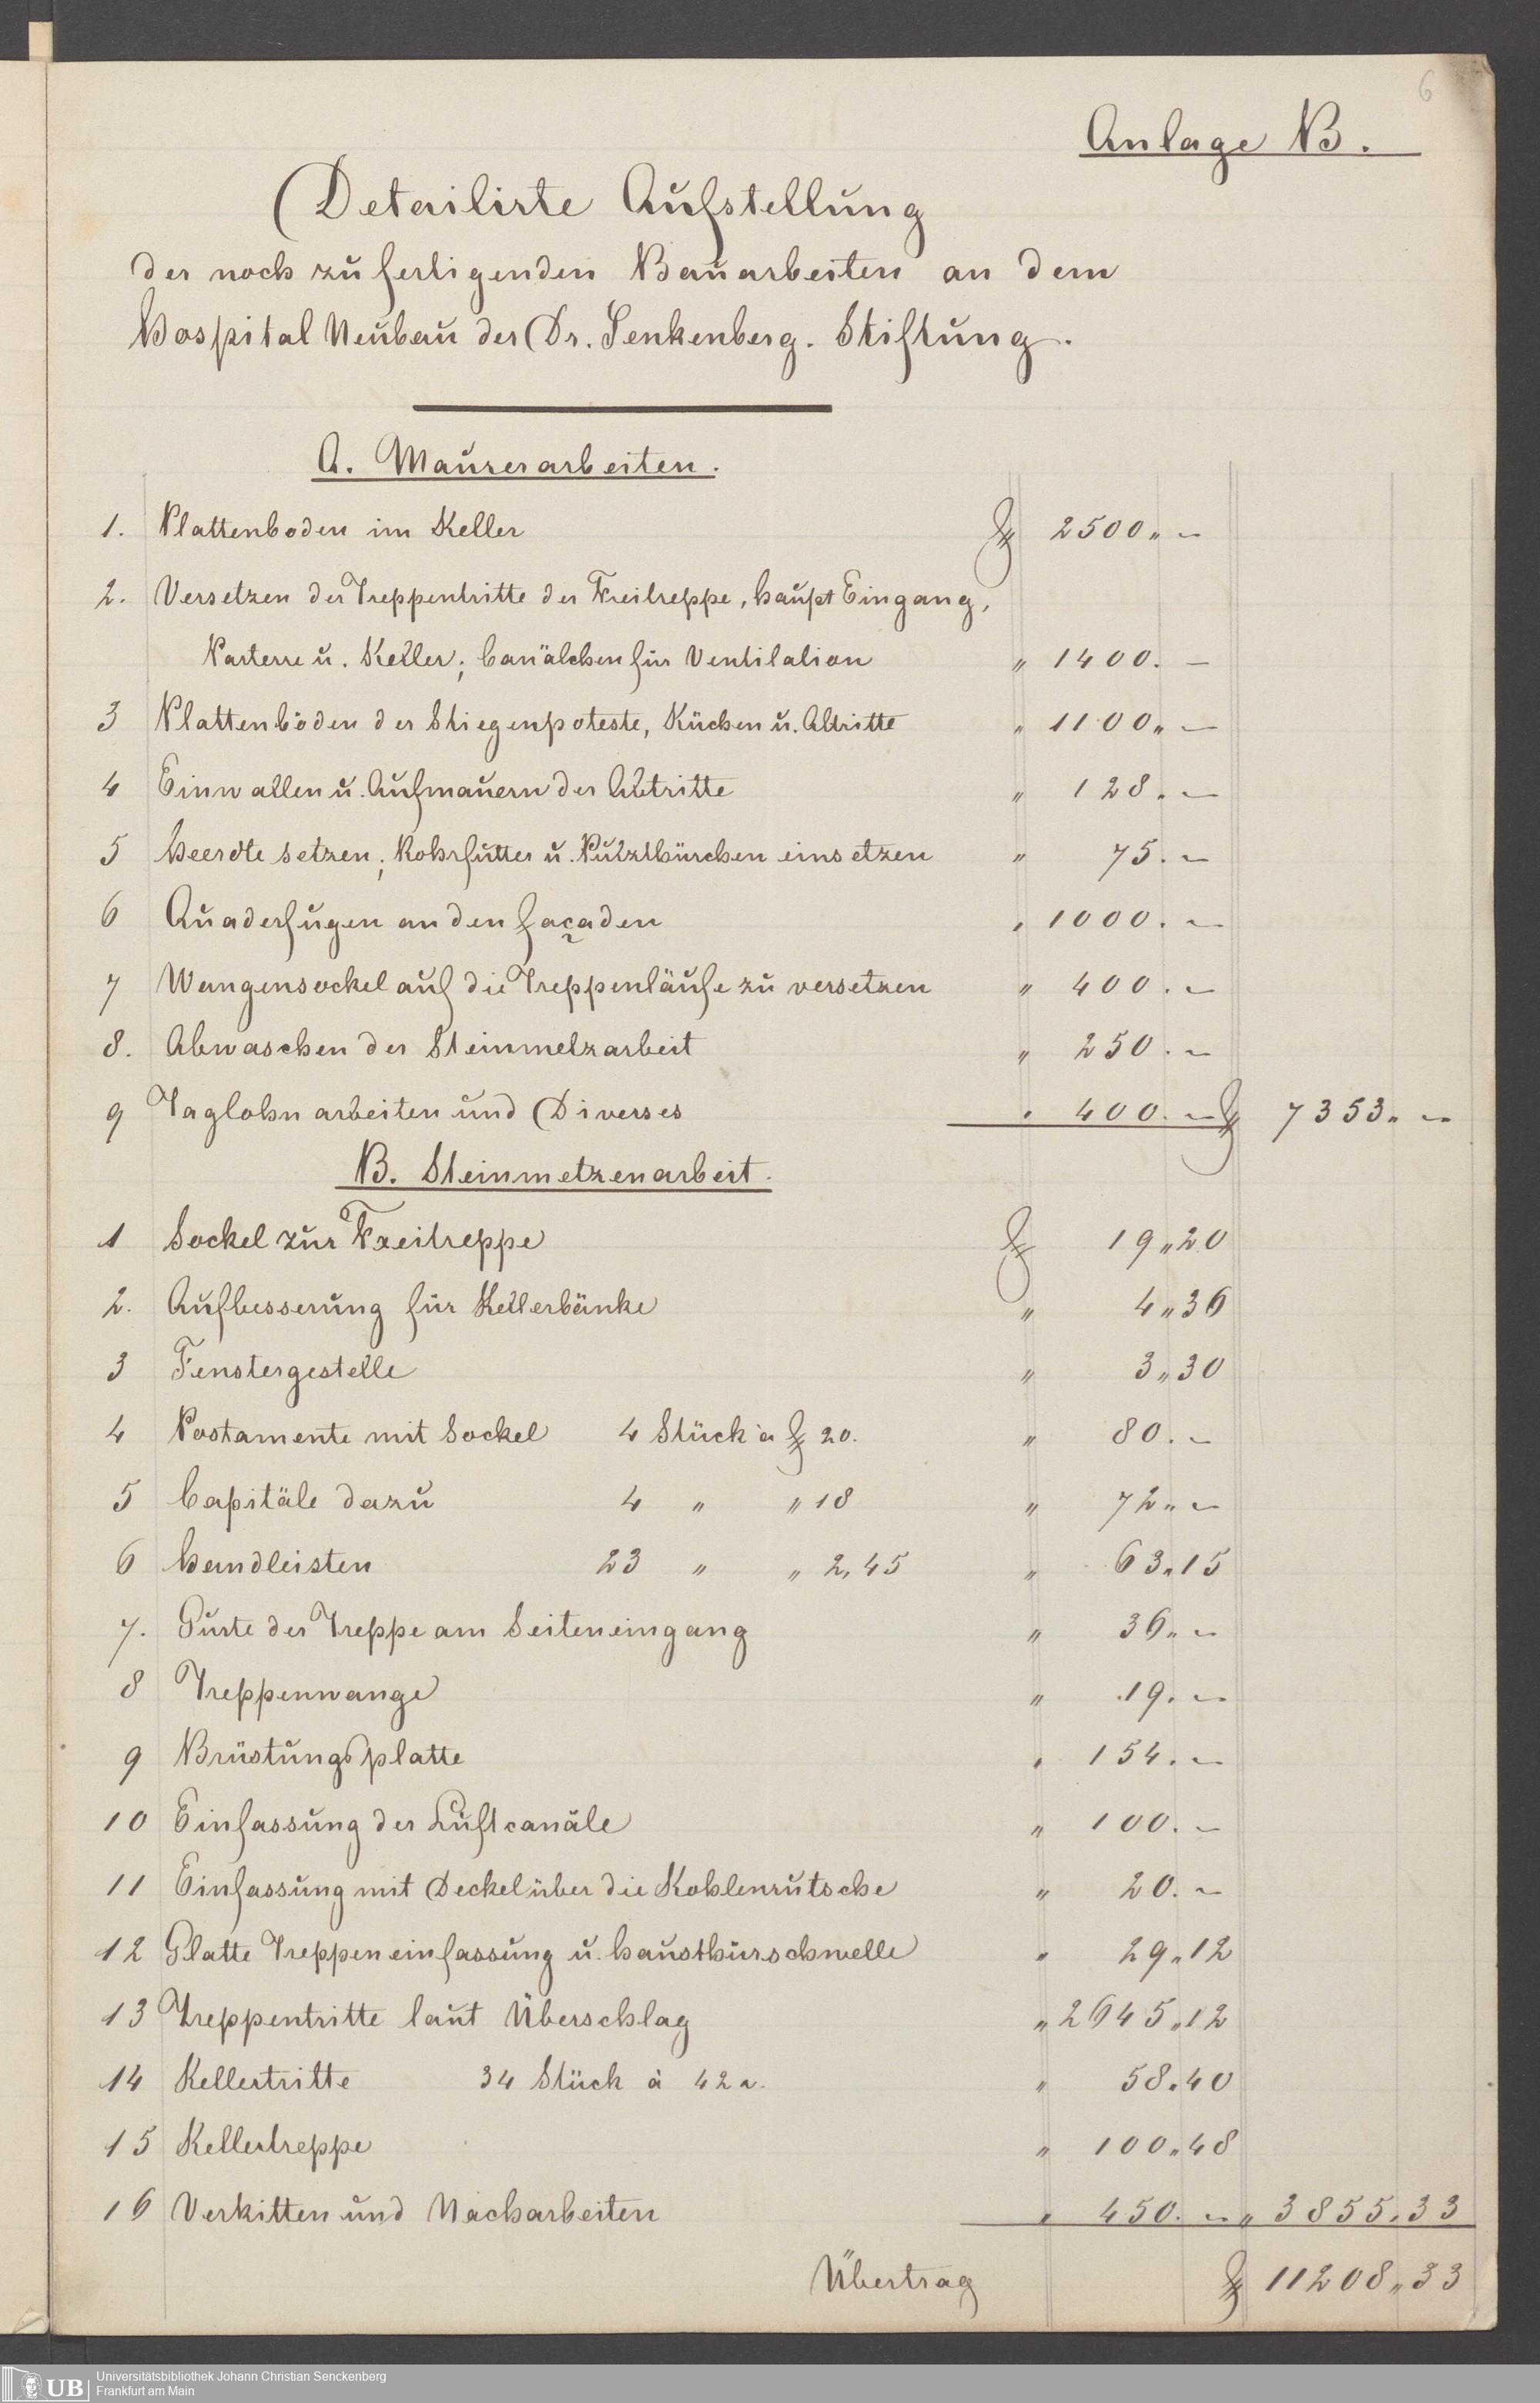 6
Anlage B.
Detailirte Aufstellung
der noch zu fertigenden Bauarbeiten an dem
Hospital Neubau der Dr. Senkenberg. Stiftung.
A. Maurerarbeiten.
1. Plattenboden im Keller f 2500 „ –
2. Versetzen der Treppentritte der Freitreppe, Haupt Eingang,
Parterre u. Keller; Canälchen für Ventilation „ 1400. –
3 Plattenböden der Stiegenpoteste, Küchen u. Abtritte „ 1100 „ –
4 Einwallen u. Aufmauern der Abtritte „ 128. –
5 Heerdte setzen; Rohrfutter u. Putzthürchen einsetzen „ 75. –
6 Quaderfugen an den Façaden „ 1000. –
7 Wangensockel auf die Treppenläufe zu versetzen „ 400. –
8. Abwaschen der Steinmetzarbeit „ 250. –
9 Taglohnarbeiten und Diverses „ 400. – f 7353 „ –
B. Steinmetzenarbeit.
1 Sockel zur Freitreppe f 19 „ 20
2. Aufbesserung für Kellerbänke „ 4 „ 36
3 Fenstergestelle „ 3 „ 30
4 Postamente mit Sockel 4 Stück à f 20. „ 80. –
5 Capitäle dazu 4 „ „ 18 „ 72 „ –
6 Handleisten 23 „ „ 2,45 „ 63 „ 15
7. Gurte der Treppe am Seiteneingang „ 36 „ –
8 Treppenwange „ 19. –
9 Brüstungsplatte „ 154. –
10 Einfassung der Luftcanäle „ 100. –
11 Einfassung mit Deckel über die Kohlenrutsche „ 20. –
12 Glatte Treppeneinfassung u. Hausthürschwelle „ 29 „ 12
13 Treppentritte laut Überschlag „ 2645 „ 12
14 Kellertritte 34 Stück à 42 „ 58. 40
15 Kellertreppe „ 100 „ 48
16 Verkitten und Nacharbeiten „ 450. – „ 3855. 33
Übertrag f 11208 „ 33
UB
Universitätsbibliothek Johann Christian Senckenberg
Frankfurt am Main